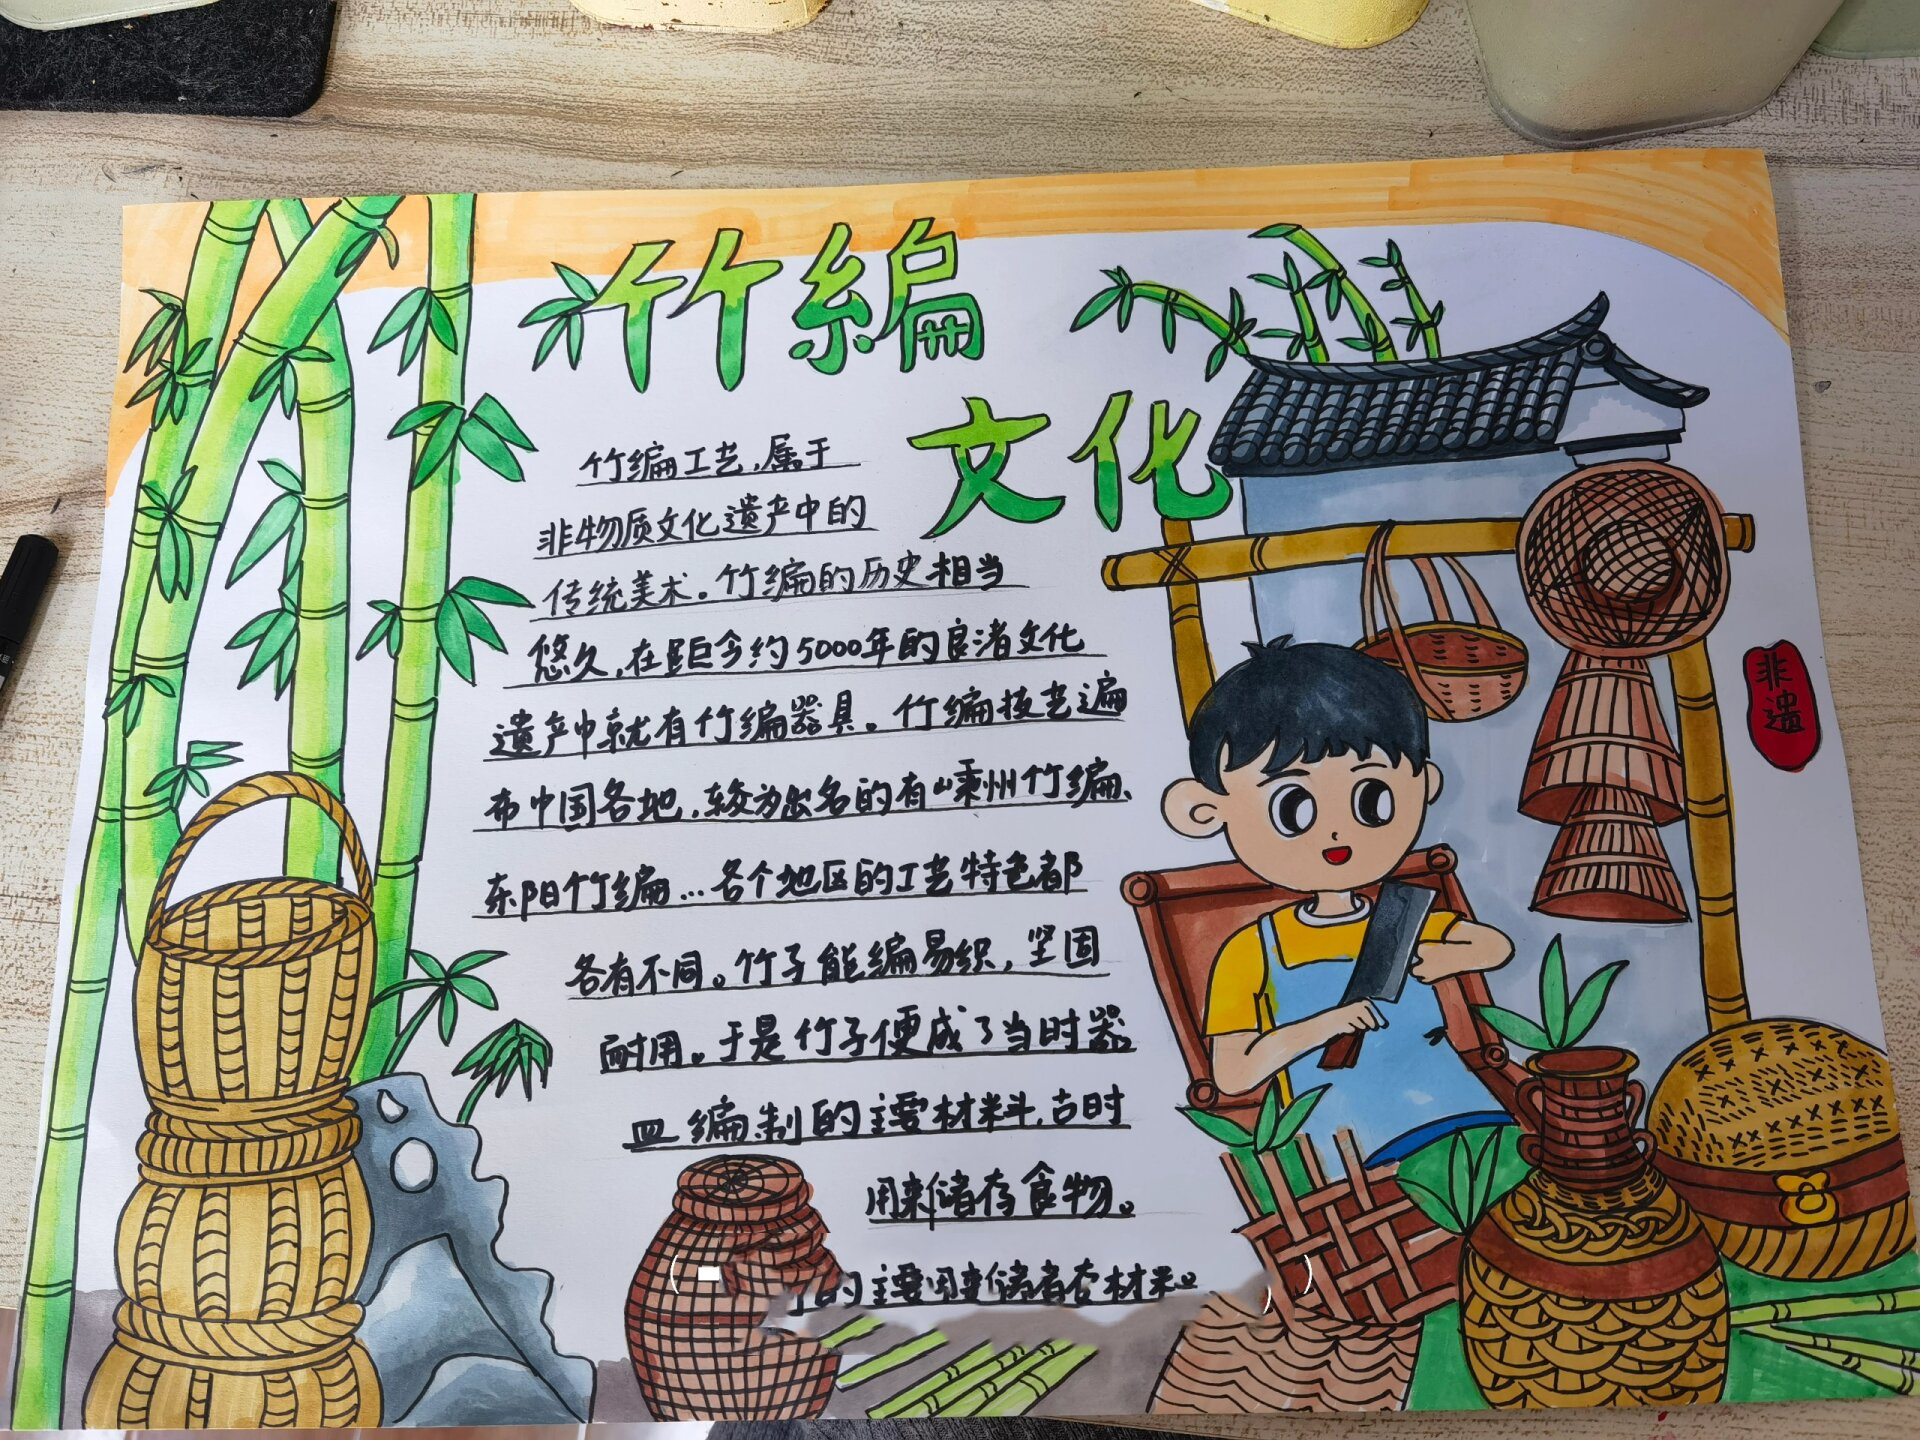 竹编
文化
竹编工艺,属于
非物质文化遗产中的
传统美术。竹编的历史相当
悠久,在距今约5000年的良渚文化
遗产中就有竹编器具。竹编技艺遍
布中国各地,较为出名的有嵊州竹编、
东阳竹编...各个地区的工艺特色都
各有不同。竹子能编易织,坚固
耐用。于是竹子便成了当时器
皿编制的主要材料,古时
用来储存食物。
的主要用来储
非遗